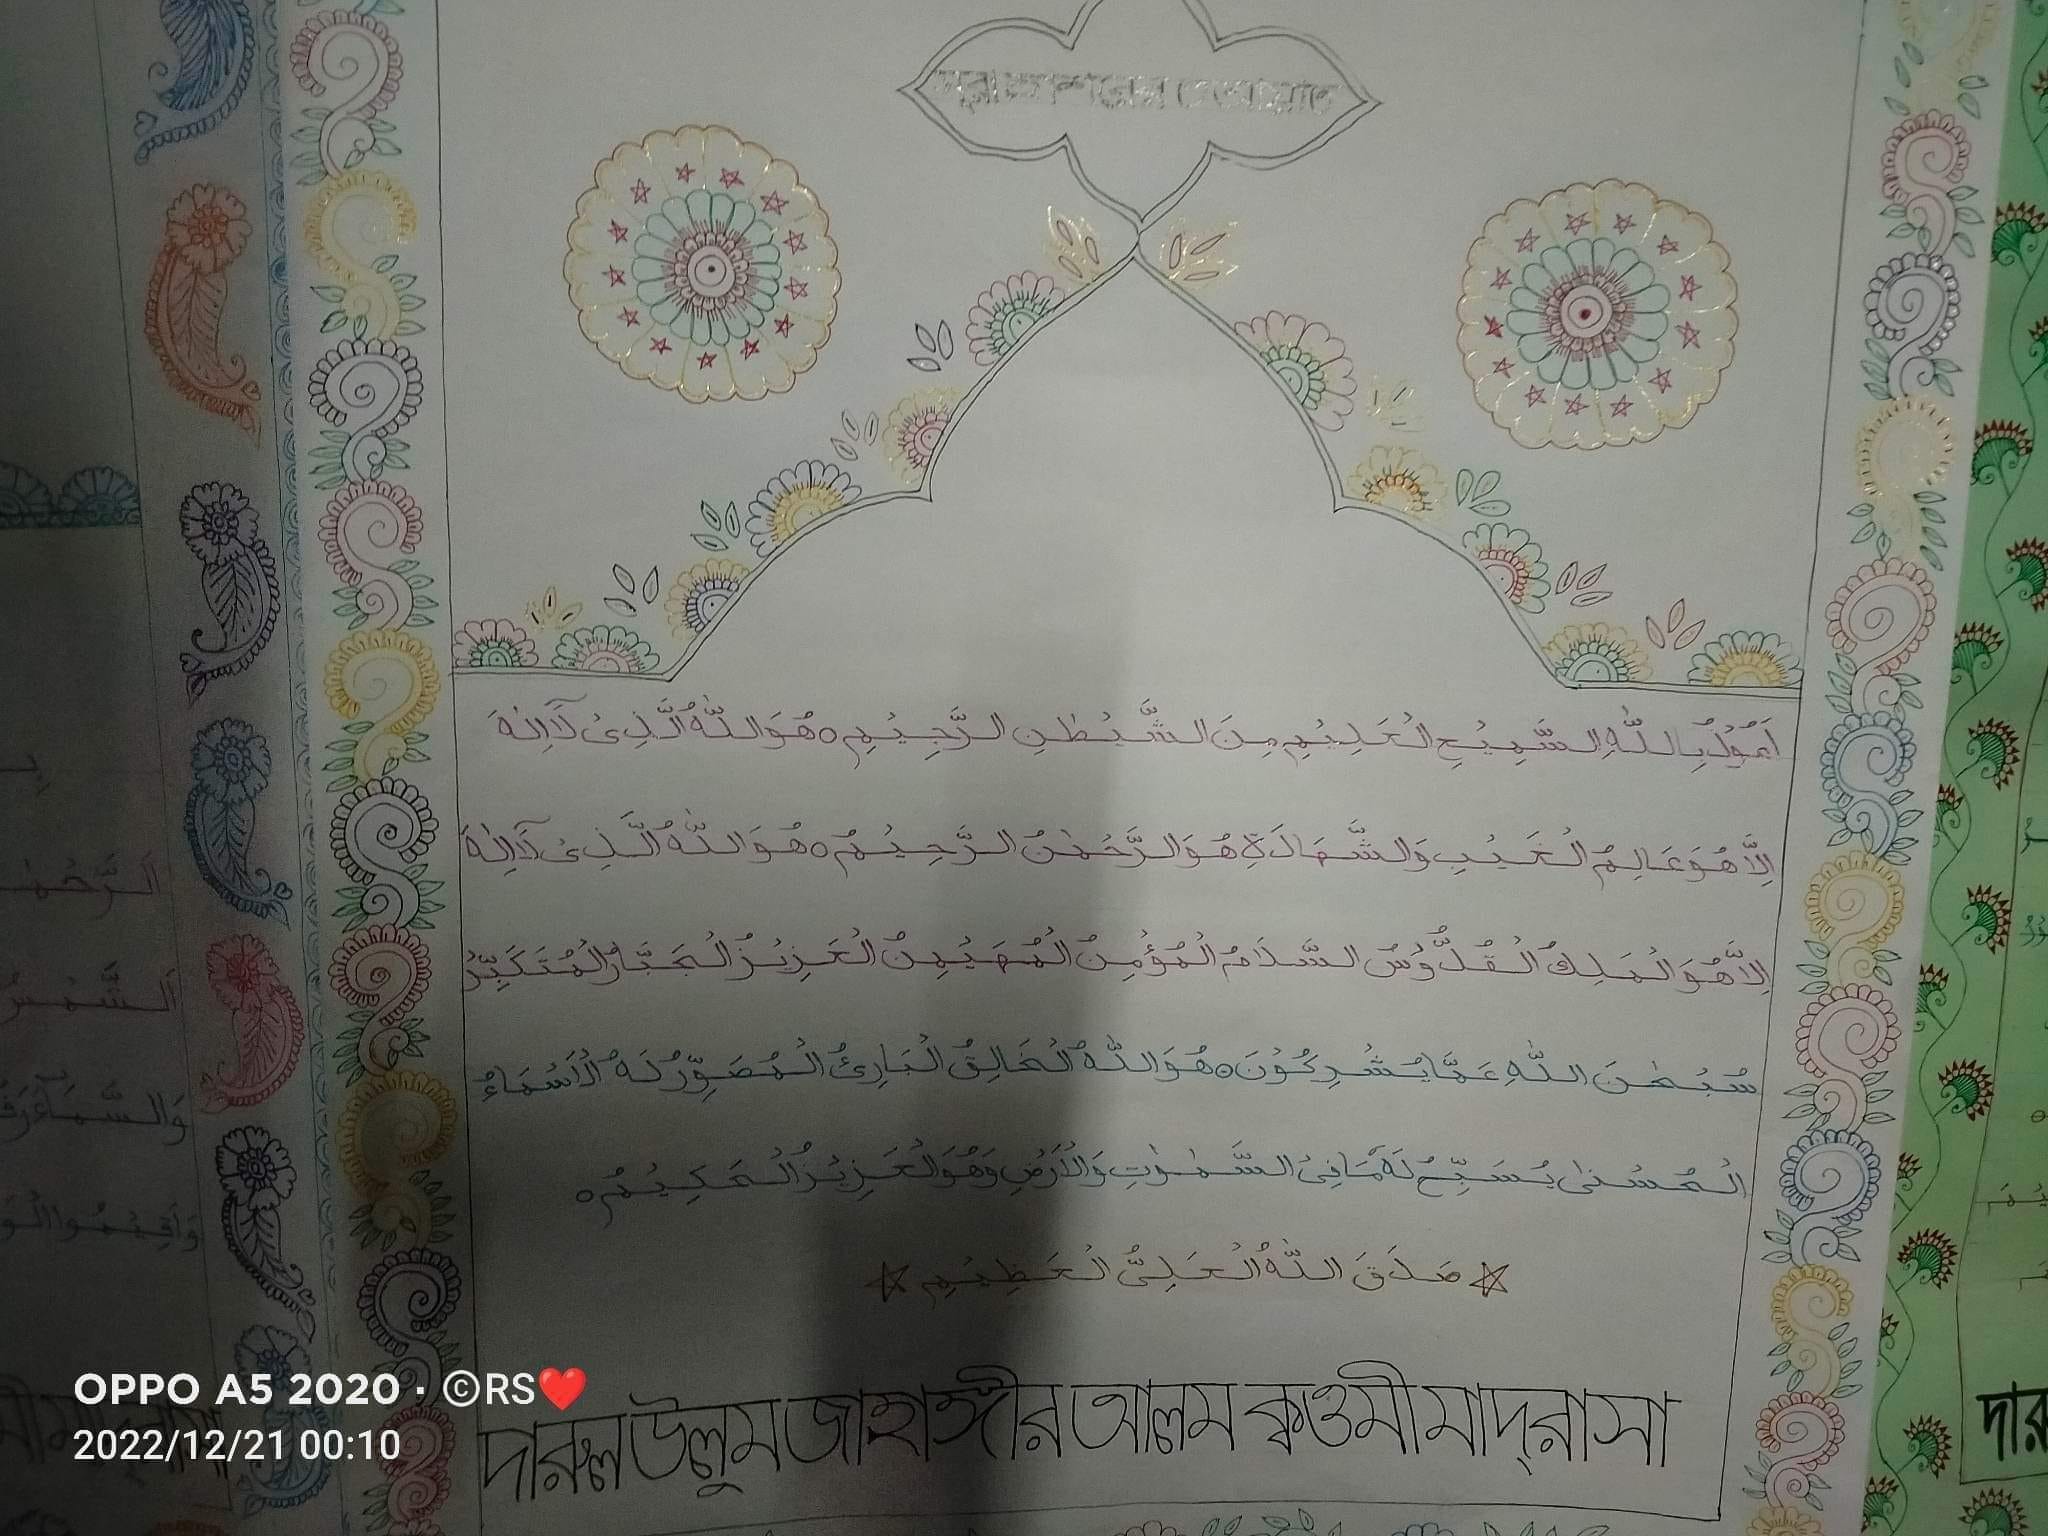 اَعُوْذُ بِاللّٰهِ السَّمِيْعِ الْعَلِيْمِ مِنَ الشَّيْطٰنِ الرَّجِيْمِ ٥ هُوَ اللّٰهُ الَّذِىْ لَآ اِلٰهَ
اِلَّا هُوَ عَالِمُ الْغَيْبِ وَالشَّهَادَةِ هُوَ الرَّحْمٰنُ الرَّحِيْمُ ٥ هُوَ اللّٰهُ الَّذِىْ لَآ اِلٰهَ
اِلَّا هُوَ الْمَلِكُ الْقُدُّوْسُ السَّلَامُ الْمُؤْمِنُ الْمُهَيْمِنُ الْعَزِيْزُ الْجَبَّارُ الْمُتَكَبِّرُ
سُبْحٰنَ اللّٰهِ عَمَّا يُشْرِكُوْنَ ٥ هُوَ اللّٰهُ الْخَالِقُ الْبَارِئُ الْمُصَوِّرُ لَهُ الْاَسْمَاءُ
الْحُسْنٰى يُسَبِّحُ لَهٗ مَا فِىْ السَّمٰوٰتِ وَالْاَرْضِ وَهُوَ الْعَزِيْزُ الْحَكِيْمُ ٥
☆ صَدَقَ اللّٰهُ الْعَلِىُّ الْعَظِيْمِ ☆
দারুল উলুম জাহাঙ্গীর আলম ক্বওমী মাদ্রাসা
اَلرَّحْمٰ
اَلشَّمْسُ
وَالسَّمَآءَ رَفَ
وَاَقِيْمُوا الْوَ
OPPO A5 2020 · ©RS❤️
2022/12/21 00:10